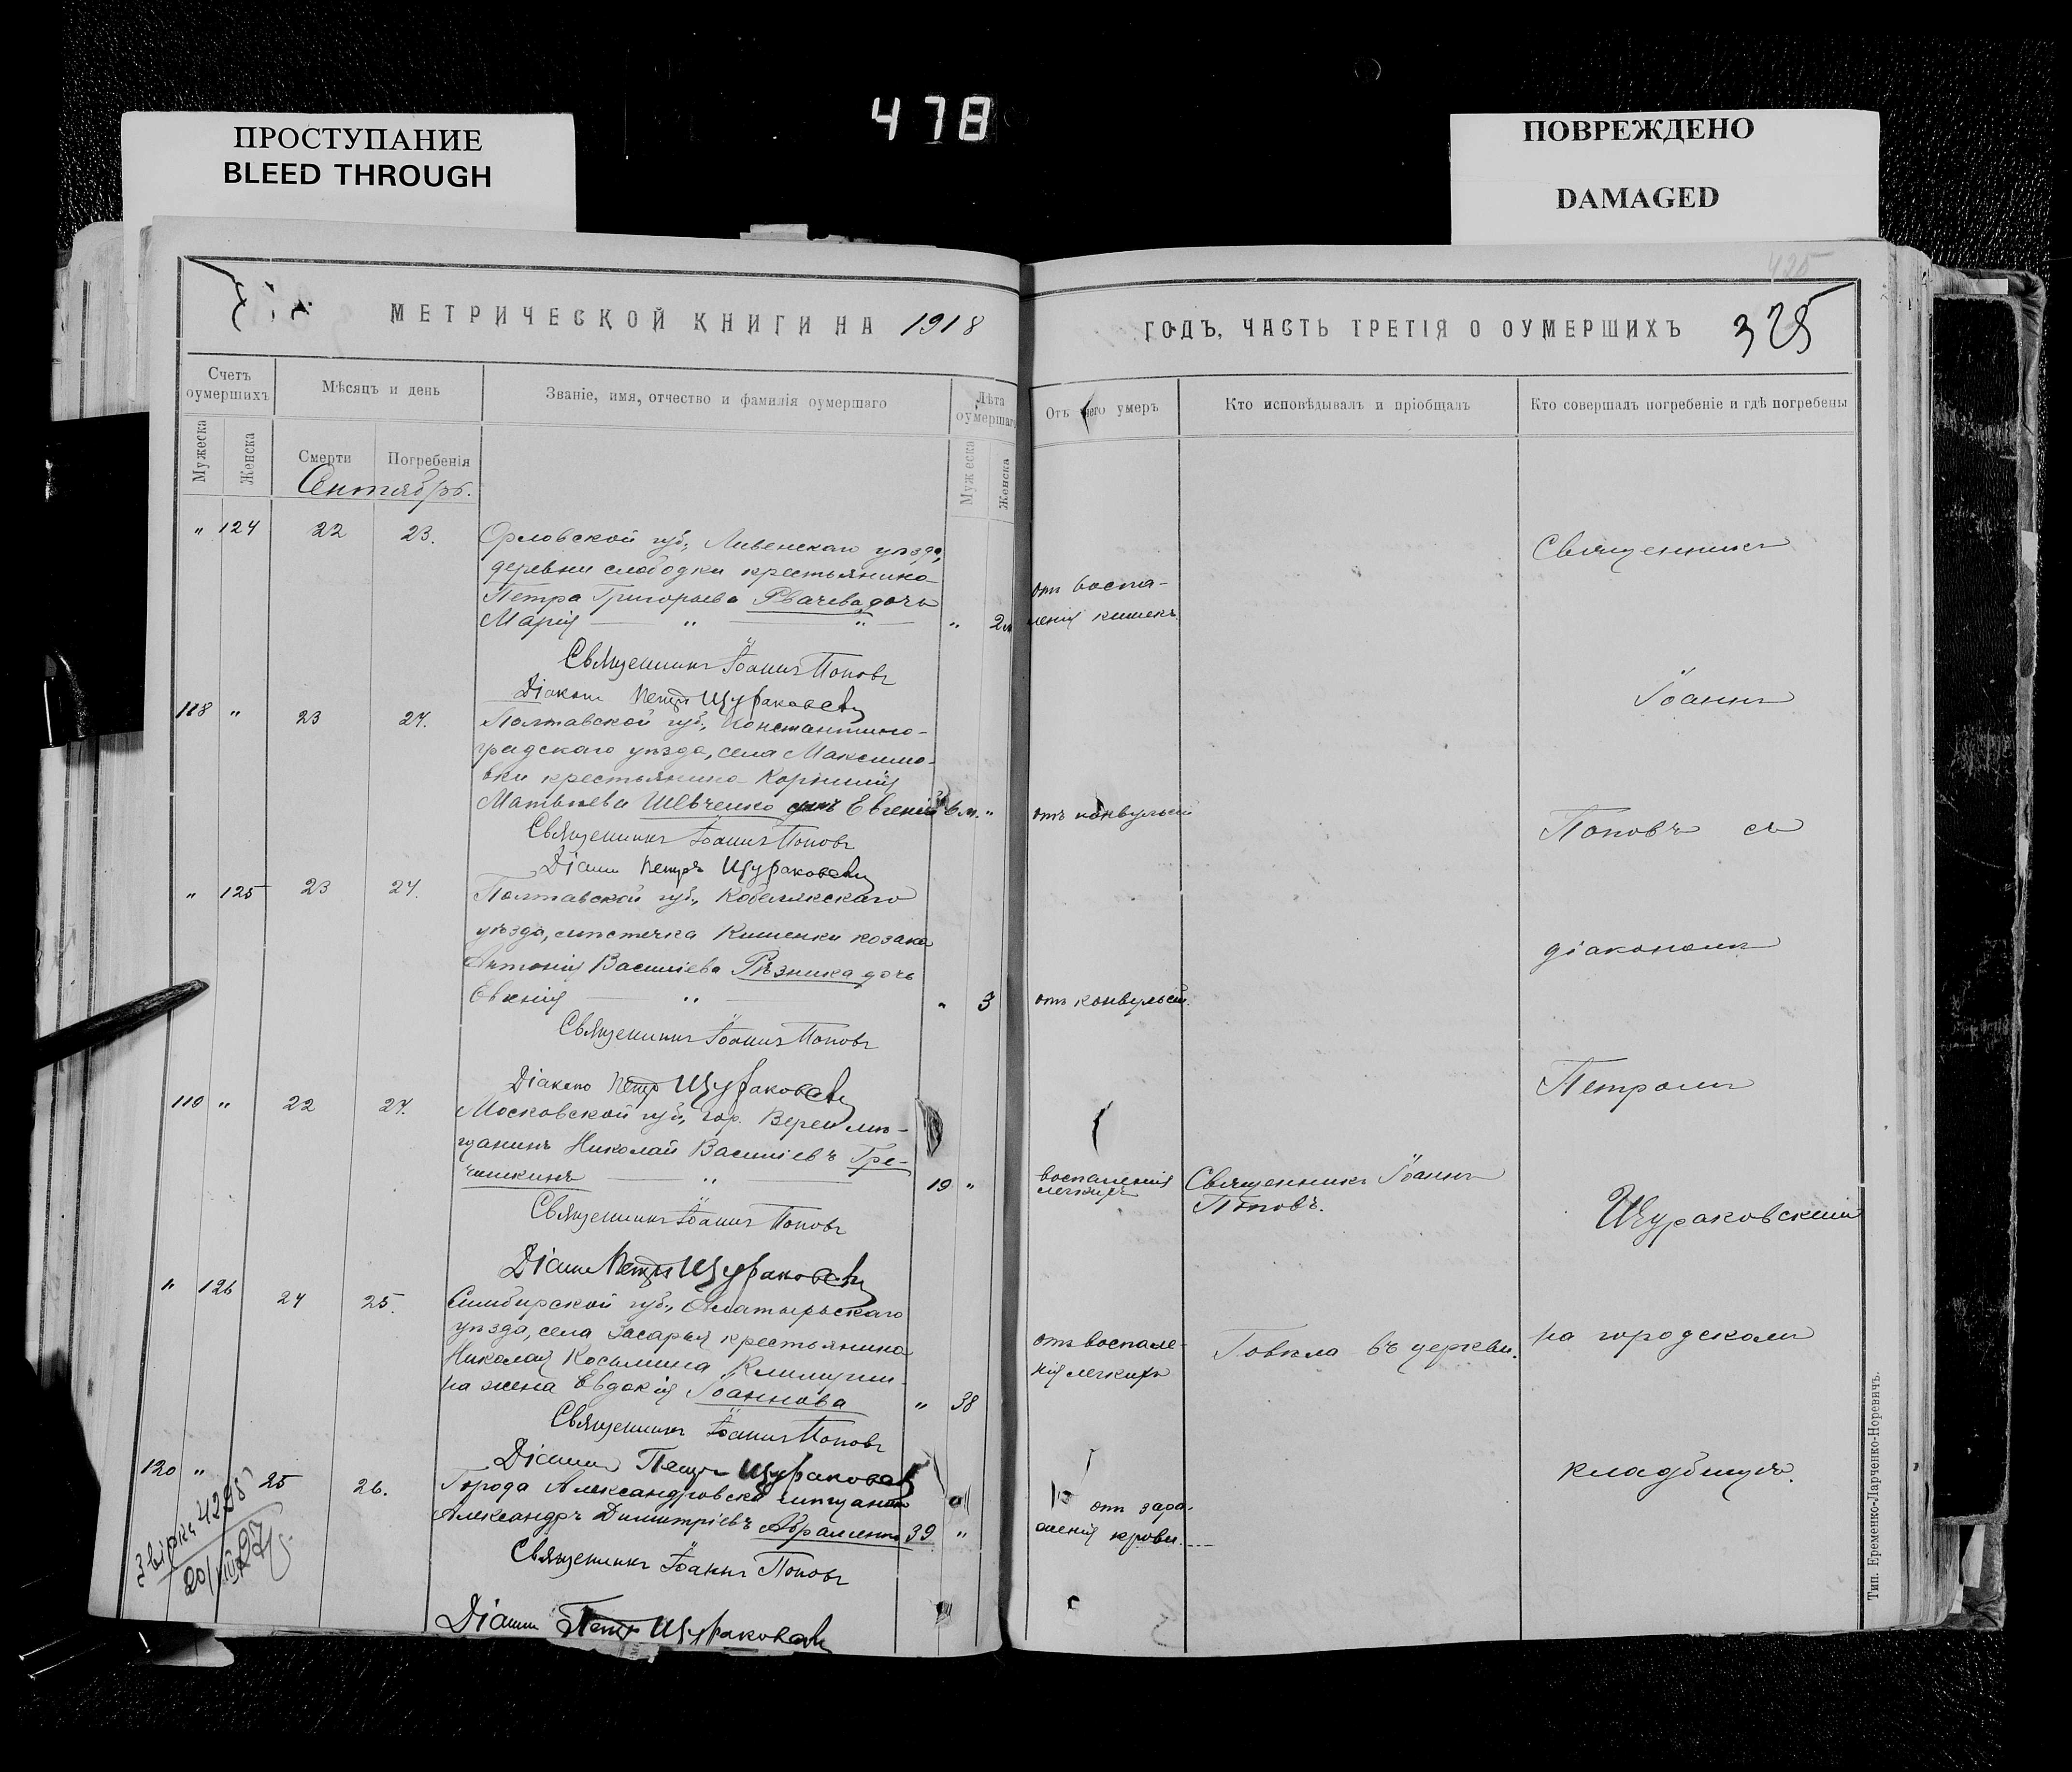 478
ПРОСТУПАНИЕ
BLEED THROUGH
ПОВРЕЖДЕНО
DAMAGED
МЕТРИЧЕСКОЙ КНИГИ НА 1918
ГОДЪ, ЧАСТЬ ТРЕТІЯ О ОУМЕРШИХЪ 325
425
Счетъ оумершихъ
Мѣсяцъ и день
Званіе, имя, отчество и фамилія оумершаго
Лѣта оумершаго
Отъ чего умеръ
Кто исповѣдывалъ и пріобщалъ
Кто совершалъ погребеніе и гдѣ погребены
Мужеска
Женска
Смерти
Погребенія
Мужеска
Женска
Сентябрь.
" 124 22 23. Орловской губ., Ливенскаго уѣзда,
деревни слободки крестьянина
Петра Григорьева Рвачева дочь
Марія " " " 2 м
отъ воспа-
ленія кишекъ.
Священникъ Іоаннъ Поповъ
Діаконъ Петръ Щураковскій
118 " 23 24. Полтавской губ., Константино-
градскаго уѣзда, села Максимо-
вки крестьянина Корнилія
Матвѣева Шевченко сынъ Евгеній 6 м. "
отъ конвульсій
Священникъ Іоаннъ Поповъ
Діаконъ Петръ Щураковскій
" 125 23 24. Полтавской губ., Кобелякскаго
уѣзда, мѣстечка Кишенки козака
Антонія Василіева Рѣзника дочь
Евгенія " " 3
отъ конвульсій.
Священникъ Іоаннъ Поповъ
Діаконъ Петръ Щураковскій
110 " 22 24. Московской губ., гор. Вереи мѣ-
щанинъ Николай Василіевъ Гре-
чишкинъ " 19 "
воспаленія
легкихъ
Священникъ Іоаннъ
Поповъ.
Священникъ Іоаннъ Поповъ
Діаконъ Петръ Щураковскій
" 126 24 25. Симбирской губ., Алатырьскаго
уѣзда, села Засарья крестьянина
Николая Косьмина
на жена Евдокія Іоаннова " 38
отъ воспале-
нія легкихъ
Говѣла въ церкви.
Священникъ Іоаннъ Поповъ
Діаконъ Петръ Щураковскій
120 " 25 26. Города Александровска мѣщанинъ
Александръ Димитріевъ Абраменко 39 "
отъ зара-
женія крови.
Священникъ Іоаннъ Поповъ
Діаконъ Петръ Щураковскій
Священникъ
Іоаннъ
Поповъ съ
діакономъ
Петромъ
Щураковскимъ
на городскомъ
кладбищѣ.
Тип. Еременко-Ларченко-Норевичъ.